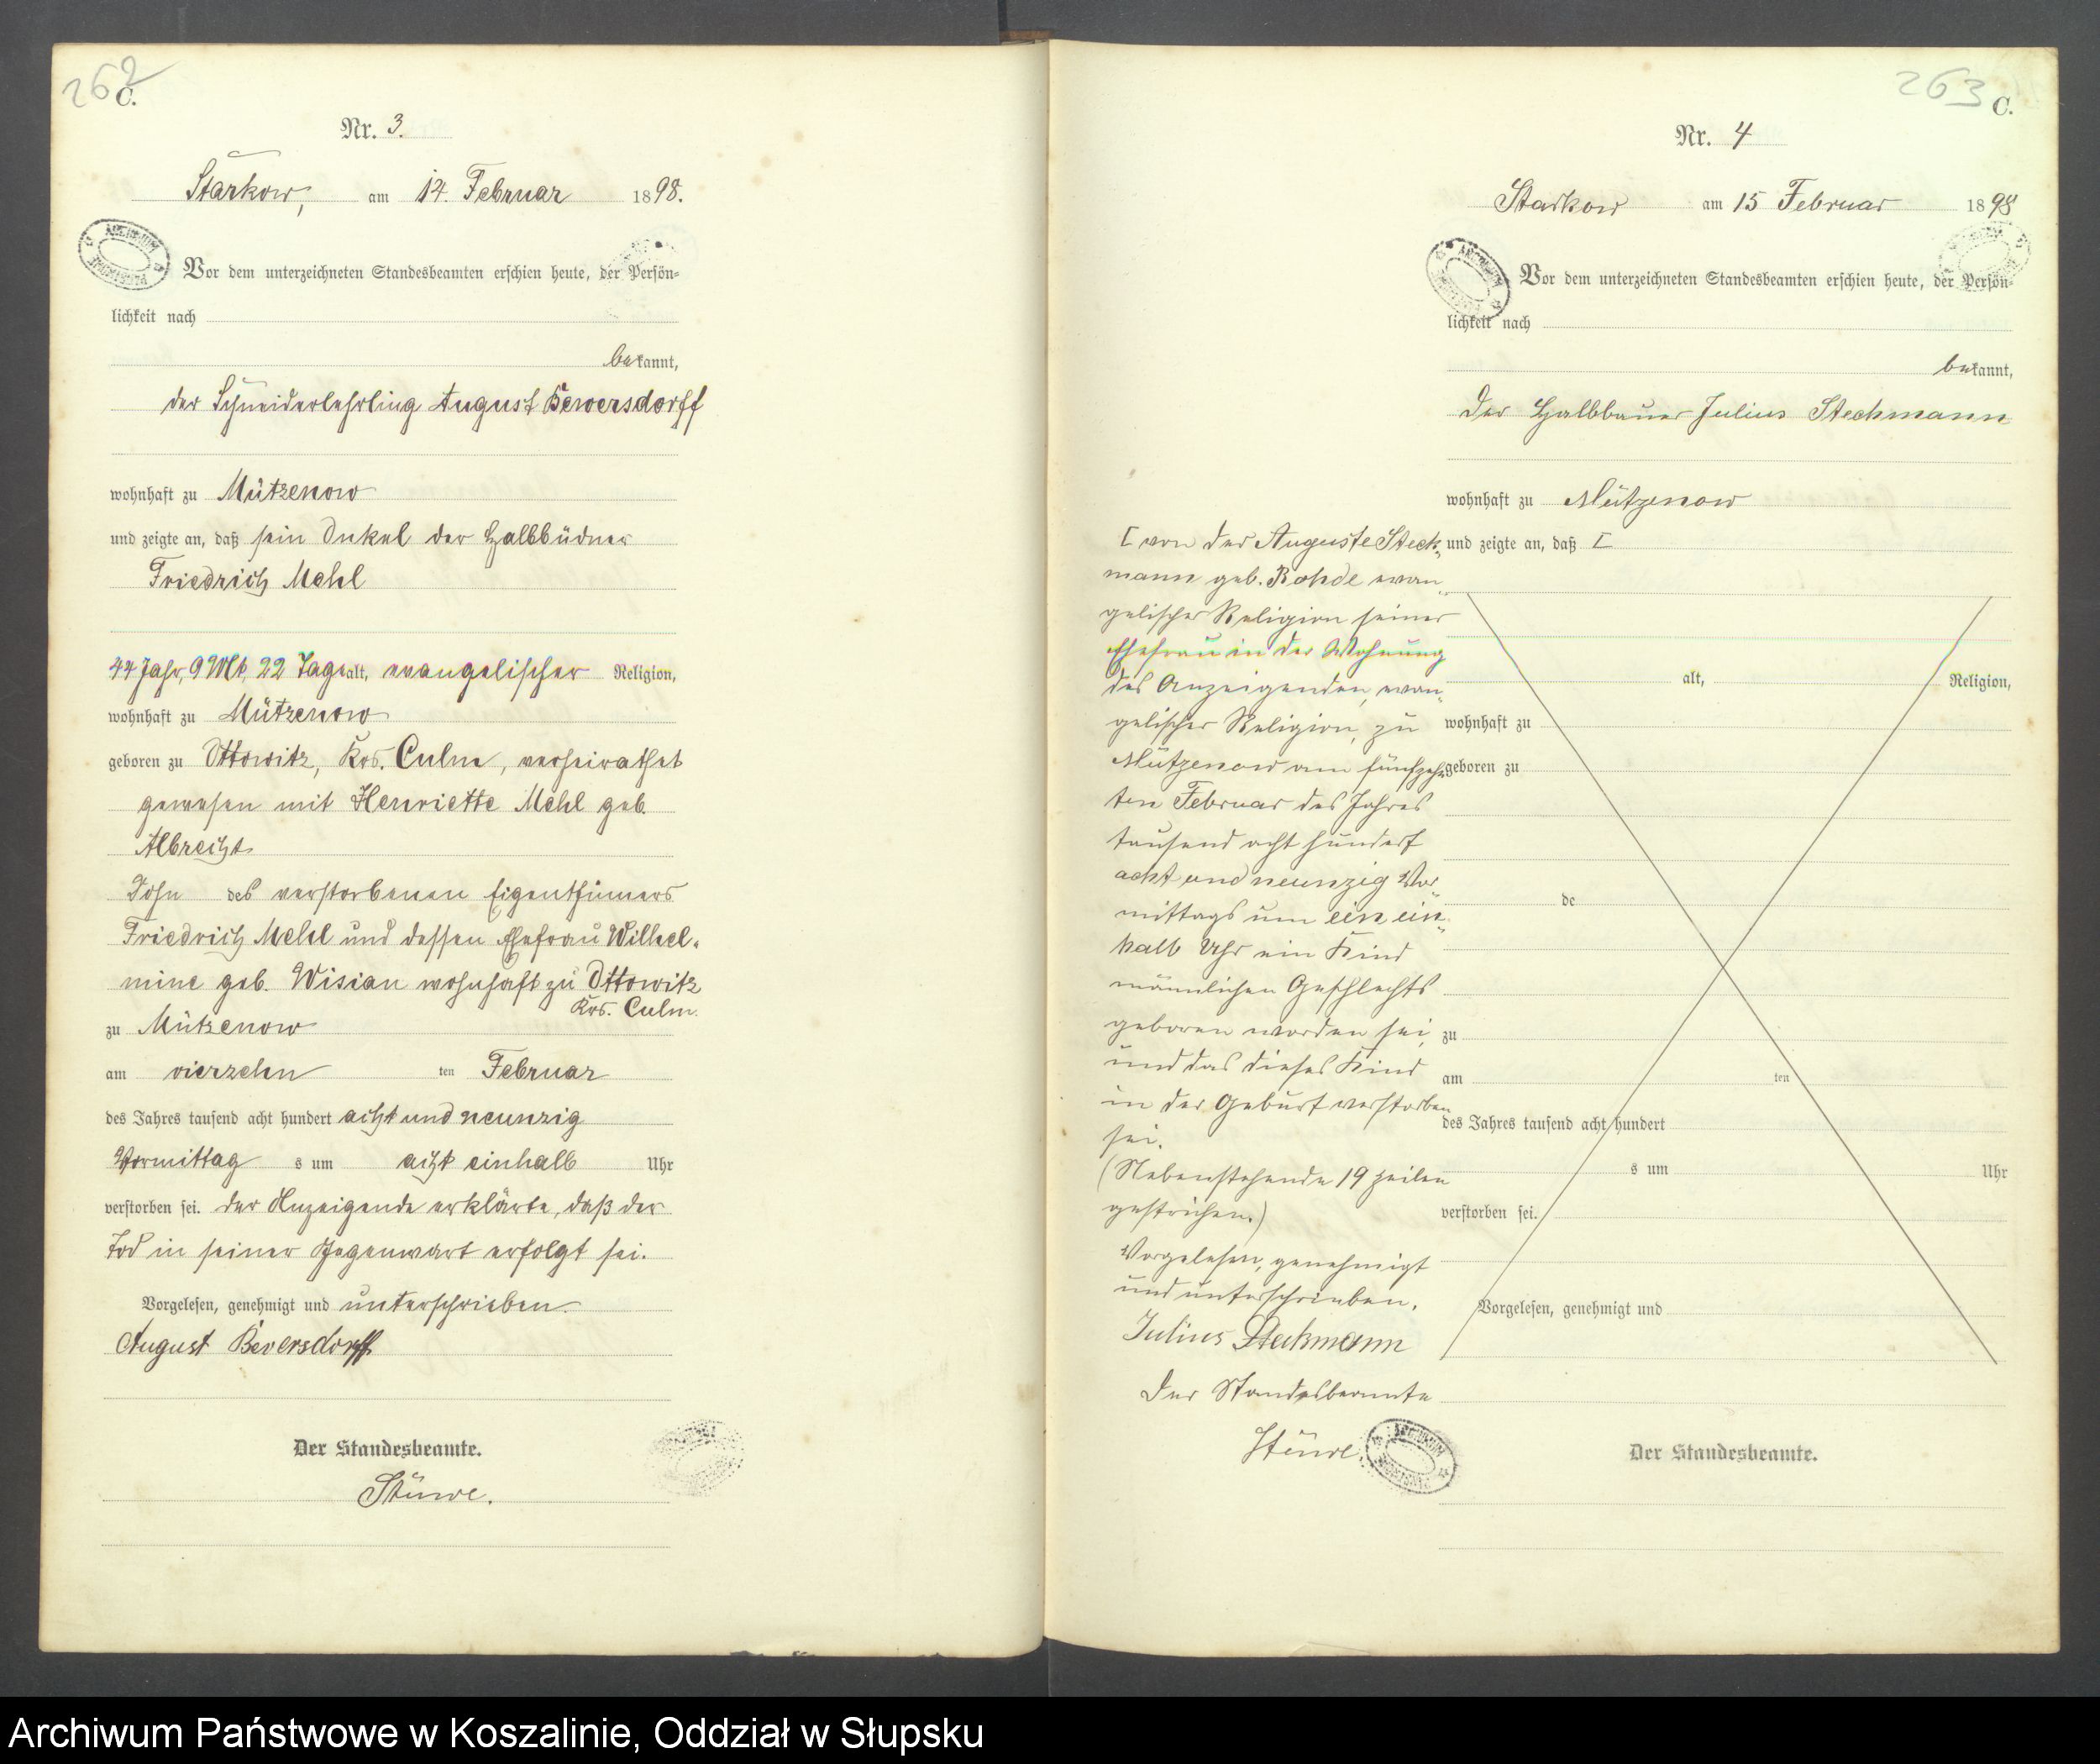 262
C.
Nr. 3.
Starkow, am 14. Februar 1898.
Vor dem unterzeichneten Standesbeamten erschien heute, der Persön-
lichkeit nach
bekannt,
der Schneiderlehrling August Bewersdorff
wohnhaft zu Mützenow
und zeigte an, daß sein Onkel der Halbbüdner
Friedrich Mehl
44 Jahr, 9 Mt, 22 Tage alt, evangelischer Religion,
wohnhaft zu Mützenow
geboren zu Ottowitz, Krs. Culm, verheirathet
gewesen mit Henriette Mehl geb.
Albrecht
Sohn des verstorbenen Eigenthümers
Friedrich Mehl und dessen Ehefrau Wilhel-
mine geb. Wisian wohnhaft zu Ottowitz
Krs. Culm.
zu Mützenow
am vierzehn ten Februar
des Jahres tausend acht hundert acht und neunzig
Vormittag s um acht einhalb Uhr
verstorben sei. Der Anzeigende erklärte, daß der
Tod in seiner Gegenwart erfolgt sei.
Vorgelesen, genehmigt und unterschrieben.
August Beversdorff
Der Standesbeamte.
Stüwe.
263
C.
Nr. 4
Starkow am 15 Februar 1898
Vor dem unterzeichneten Standesbeamten erschien heute, der Persön-
lichkeit nach
bekannt,
Der Halbbauer Julius Steckmann
wohnhaft zu Mützenow
und zeigte an, daß [
[ von der Auguste Steck-
mann geb. Rohde evan-
gelischer Religion seiner
Ehefrau in der Wohnung
des Anzeigenden, evan-
gelischer Religion, zu
Mützenow am fünfzehn
ten Februar des Jahres
tausend acht hundert
acht und neunzig Vor-
mittags um ein ein-
halb Uhr ein Kind
männlichen Geschlechts
geboren worden sei,
und das dieses Kind
in der Geburt verstorben
sei.
(Nebenstehende 19 Zeilen
gestrichen.)
Vorgelesen, genehmigt
und unterschrieben.
Julius Steckmann
Der Standesbeamte
Stüwe.
alt, Religion,
wohnhaft zu
geboren zu
de
zu
am ten
des Jahres tausend acht hundert
s um Uhr
verstorben sei.
Vorgelesen, genehmigt und
Der Standesbeamte.
Archiwum Państwowe w Koszalinie, Oddział w Słupsku